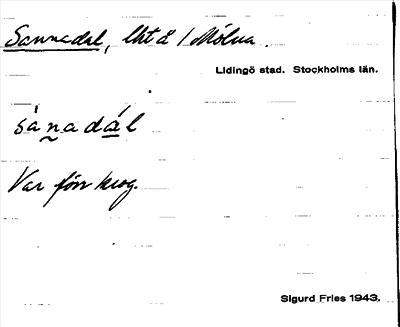 Sannadal, lht å 1 Mölna.
Lidingö stad. Stockholms län.
sànadál
Var förr krog.
Sigurd Fries 1943.